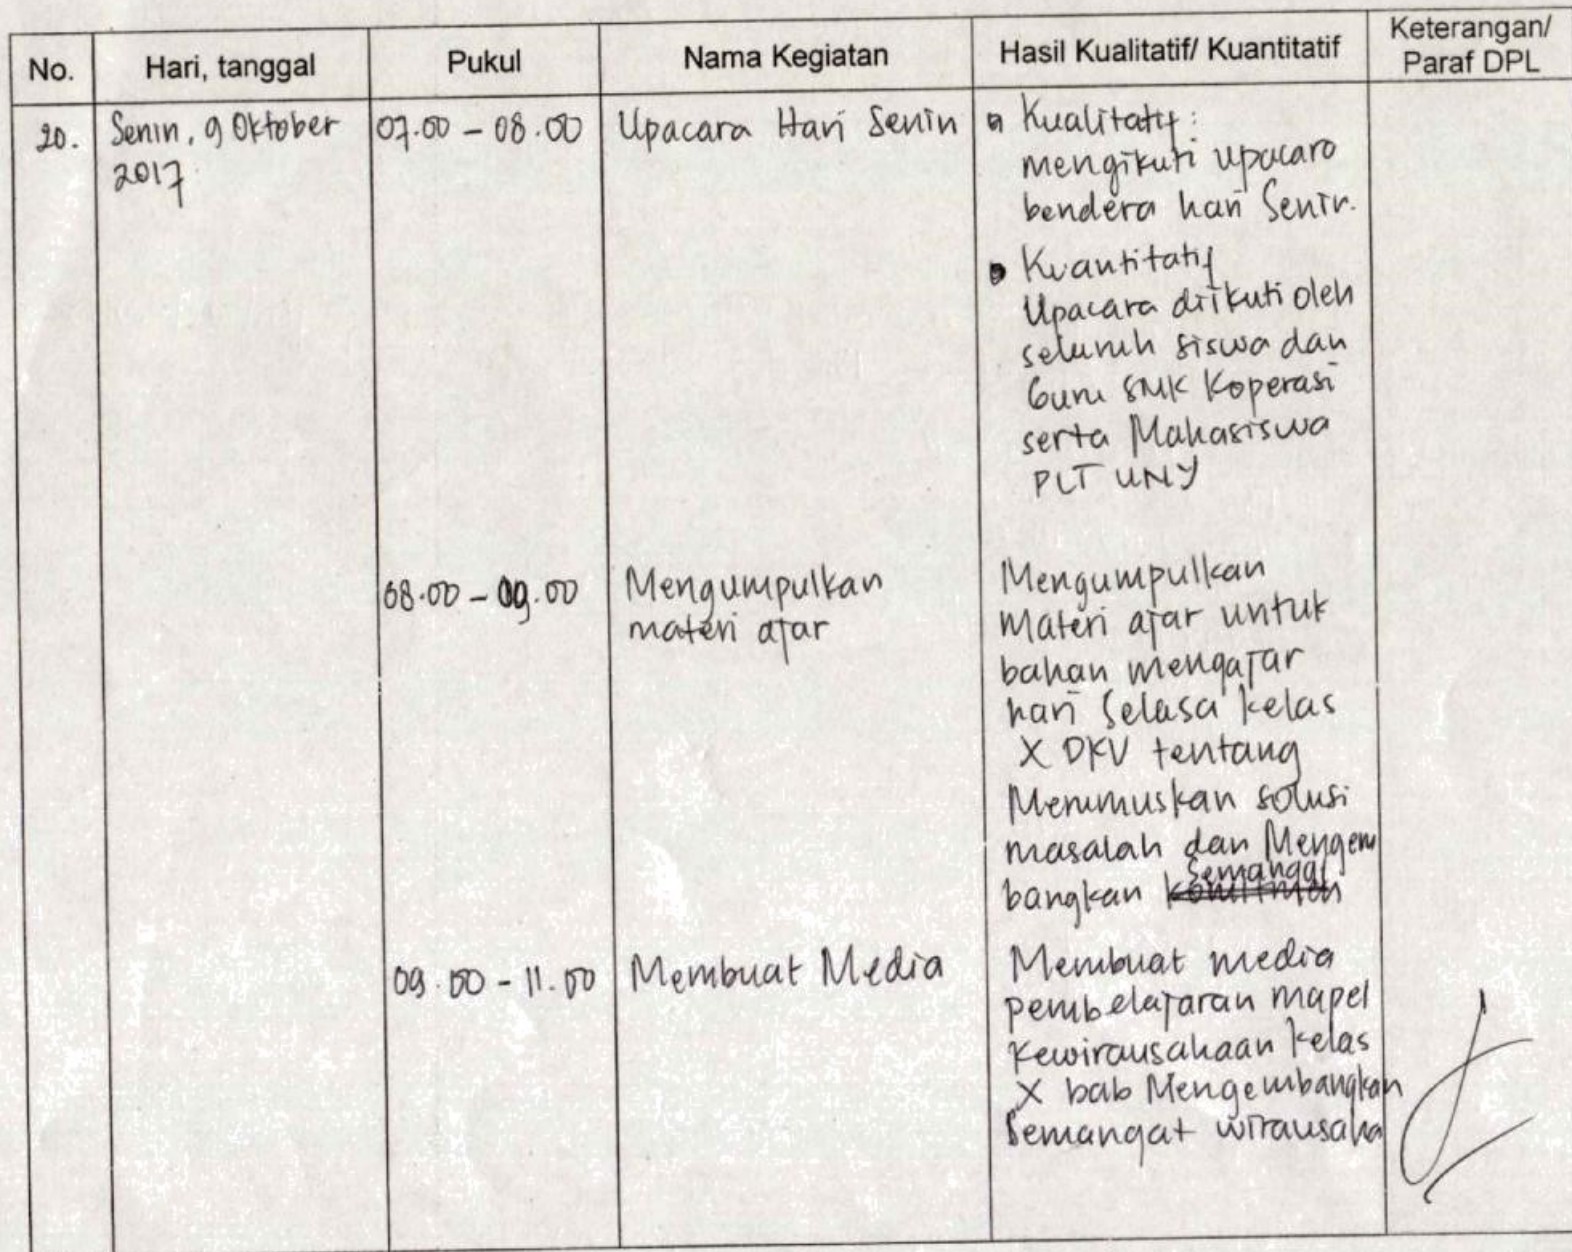 No. Hari, tanggal Pukul Nama Kegiatan Hasil Kualitatif/ Kuantitatif Keterangan/
Paraf DPL
20. Senin, 9 Oktober 07.00 - 08.00 Upacara Hari Senin Kualitatif:
2017 mengikuti upacara
bendera hari Senin.
Kuantitatif
Upacara diikuti oleh
seluruh siswa dan
Guru SMK Koperasi
serta Mahasiswa
PLT UNY
08.00 - 09.00 Mengumpulkan Mengumpulkan
materi ajar Materi ajar untuk
bahan mengajar
hari Selasa kelas
X DKV tentang
Merumuskan solusi
masalah dan Mengem
bangkan Semangat
09.00 - 11.00 Membuat Media Membuat media
pembelajaran mapel
Kewirausahaan kelas
X bab Mengembangkan
Semangat wirausaha